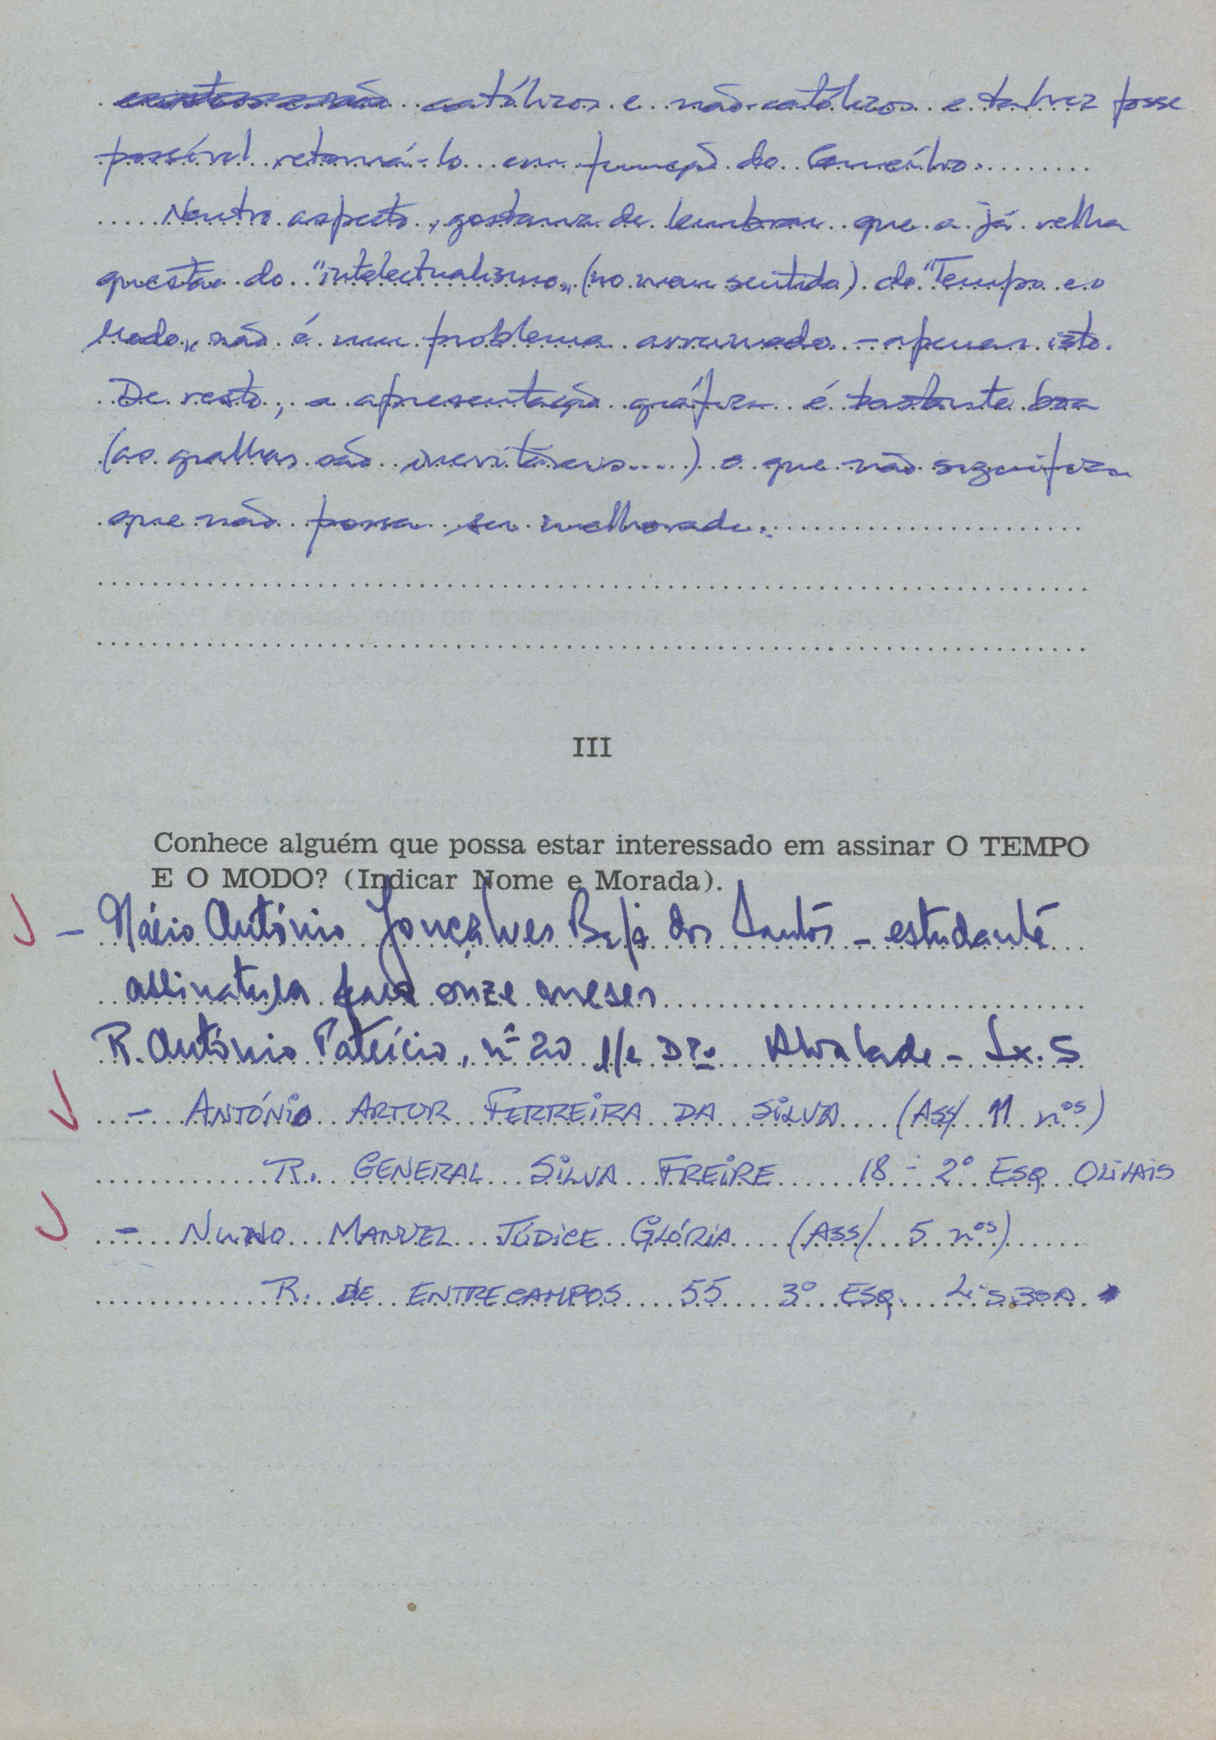 católicos e não-católicos e talvez fosse
possível retomá-lo em função do Concílio.
Noutro aspecto, gostava de lembrar que a já velha
questão do "intelectualismo" (no mau sentido) do "Tempo e o
Modo" não é um problema arrumado - apenas isto.
De resto, a apresentação gráfica é bastante boa
(as gralhas são inevitáveis...) o que não significa
que não possa ser melhorada.
III
Conhece alguém que possa estar interessado em assinar O TEMPO
E O MODO? (Indicar Nome e Morada).
- Mário António Gonçalves Beja dos Santos - estudante
assinatura para onze meses
R. António Patrício, nº 20 r/c Dto Alvalade - Lx. 5
- ANTÓNIO ARTUR FERREIRA DA SILVA (ASS/ 11 nos)
R. GENERAL SILVA FREIRE 18 - 2º ESQ OLIVAIS
- NUNO MANUEL JÚDICE GLÓRIA (ASS/ 5 nos)
R. DE ENTRECAMPOS 55 3º ESQ. LISBOA